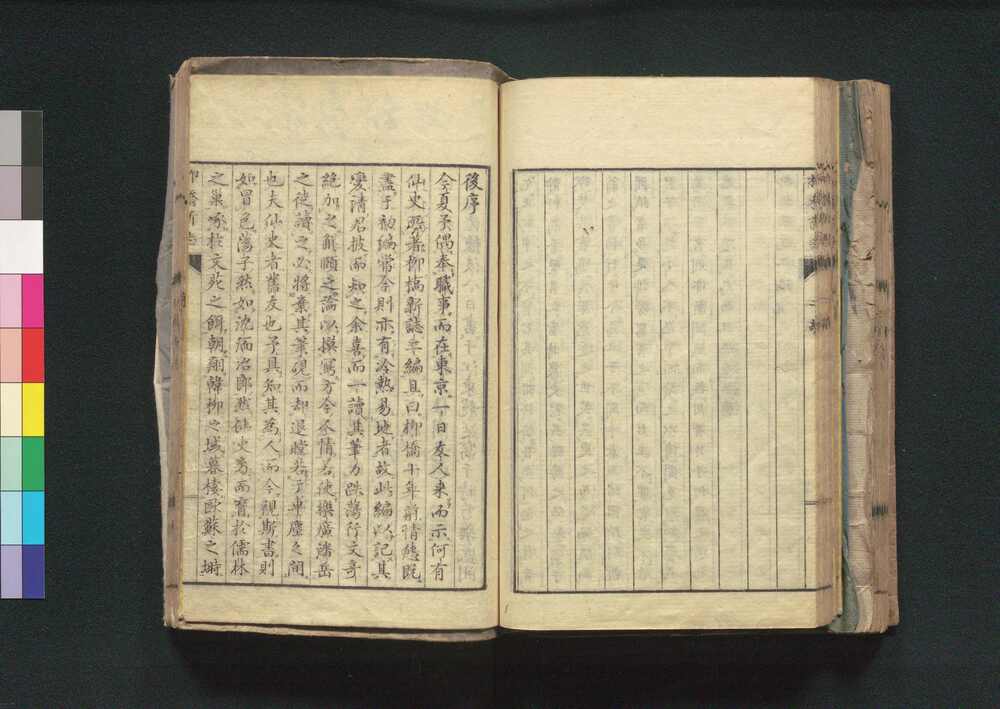 後序
今夏予偶奉職事而在東京一日友人来而示何有
仙史所著柳橋新誌二編且曰柳橋十年前情態既
盡于初編當今則亦有冷熱易地者故此編以記其
変請君披而知之余喜而一讀其筆力跌蕩行文奇
絶加之創頤之論以摸寫方今人情若使樂廣潘岳
之徒讀之必將棄其筆硯而却退瞠若于車塵之間
也夫仙史者舊友也予具知其為人而今視斯書則
如冒色蕩子然如沈湎冶郎然仙史嘗而育於儒林
之巣啄於文苑之餌朝翔韓柳之域暮棲欧蘇之塒
柳橋新誌